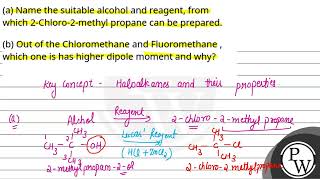 (a) Name the suitable alcohol and reagent, from
which 2-Chloro-2-methyl propane can be prepared.
(b) Out of the Chloromethane and Fluoromethane ,
which one is has higher dipole moment and why?
Key concept - Haloalkanes and their properties
(a) Alcohol Reagent 2-chloro-2-methyl propane
CH3 Lucas' Reagent CH3
CH3-C-OH (HCl + ZnCl2) CH3-C-Cl
CH3 CH3
2-methylpropan-2-ol 2-chloro-2-methylpropane
PW